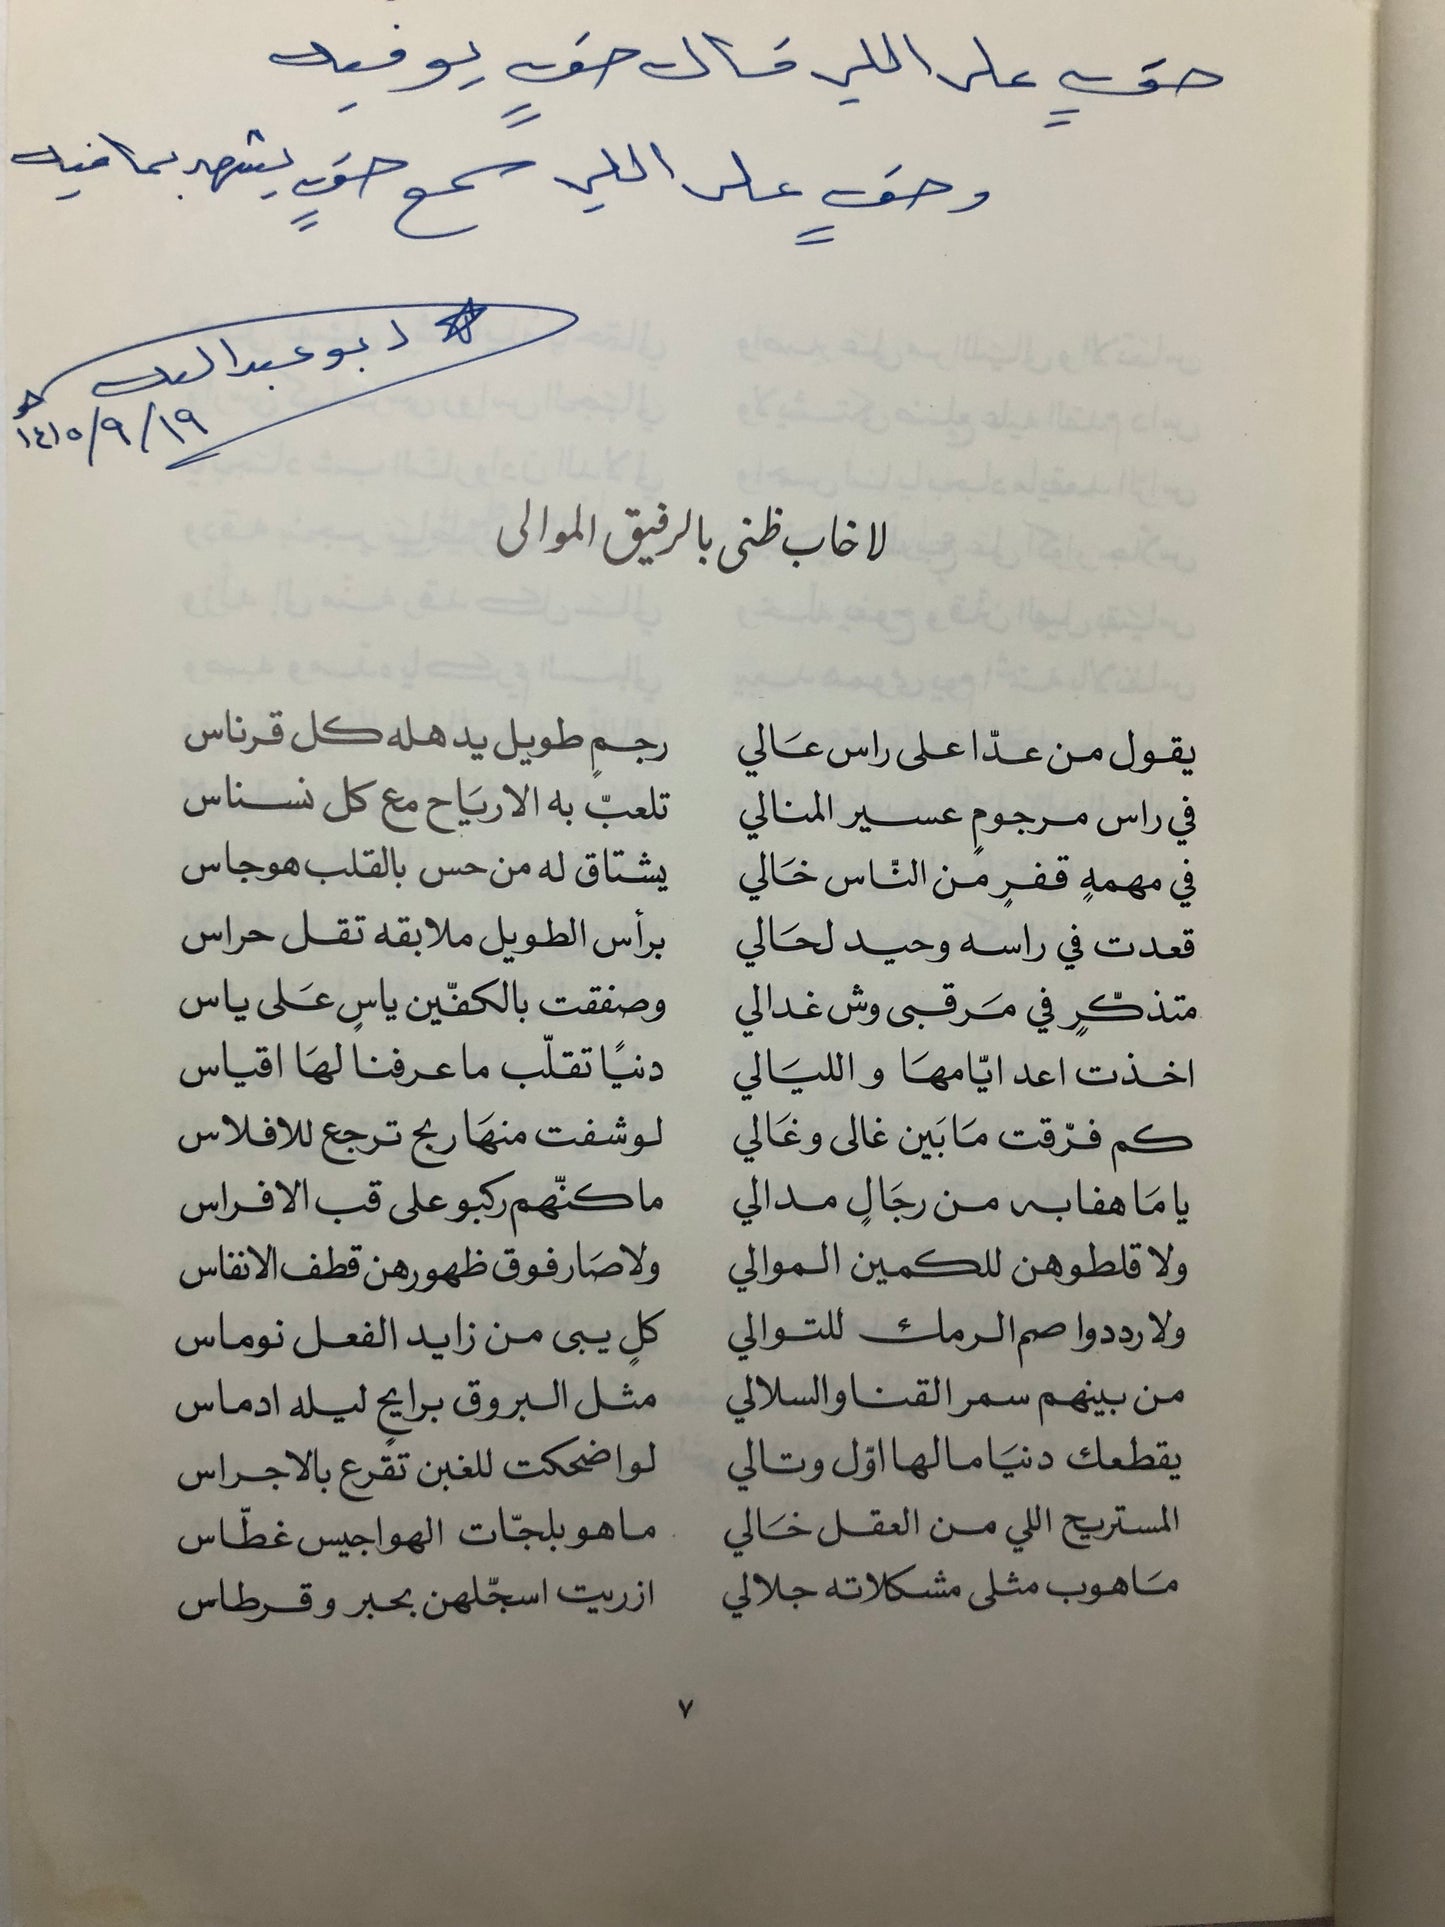 حقٍ على اللي قال حقٍ يوفيه
وحقٍ على اللي سمع حقٍ يشهد بما فيه
ابو عبدالله
١٤١٥/٩/١٩
لا خاب ظنى بالرفيق الموالى
يقول من عدّا على راس عَالي رجمٍ طويل يدهله كل قرناس
في راس مرجومٍ عسير المنالي تلعبّ به الاريَاح مع كل نسناس
في مهمهٍ قفرٍ من النّاس خَالي يشتاق له من حس بالقلب هوجاس
قعدت في راسه وحيد لحَالي برأس الطويل ملابقه تقل حراس
متذكّرٍ في مَرقبى وش غدالي وصفقت بالكفّين ياسٍ عَلى ياس
اخذت اعد ايّامهَا و الليَالي دنيًا تقلّب ما عرفنا لهَا اقياس
كم فرّقت مَابَين غالى وغَالي لو شفت منهَا ربح ترجع للافلاس
يا مَا هفا به من رجَالٍ مدالي ما كنّهم ركبو على قب الافراس
ولا قلطوهن للكمين الموالي ولا صَار فوق ظهورهن قطف الانفاس
ولا رددوا صم الرمك للتوالي كلٍ يبى من زايد الفعل نوماس
من بينهم سمر القنا والسلالي مثل البروق برايحٍ ليله ادماس
يقطعك دنيَا مالها اوّل وتالي لو اضحكت للغبن تقرع بالاجراس
المستريح اللي من العقل خَالي ما هو بلجّات الهواجيس غطّاس
مَاهوب مثلى مشكلاته جلالي ازريت اسجّلهن بحبر وقرطاس
٧